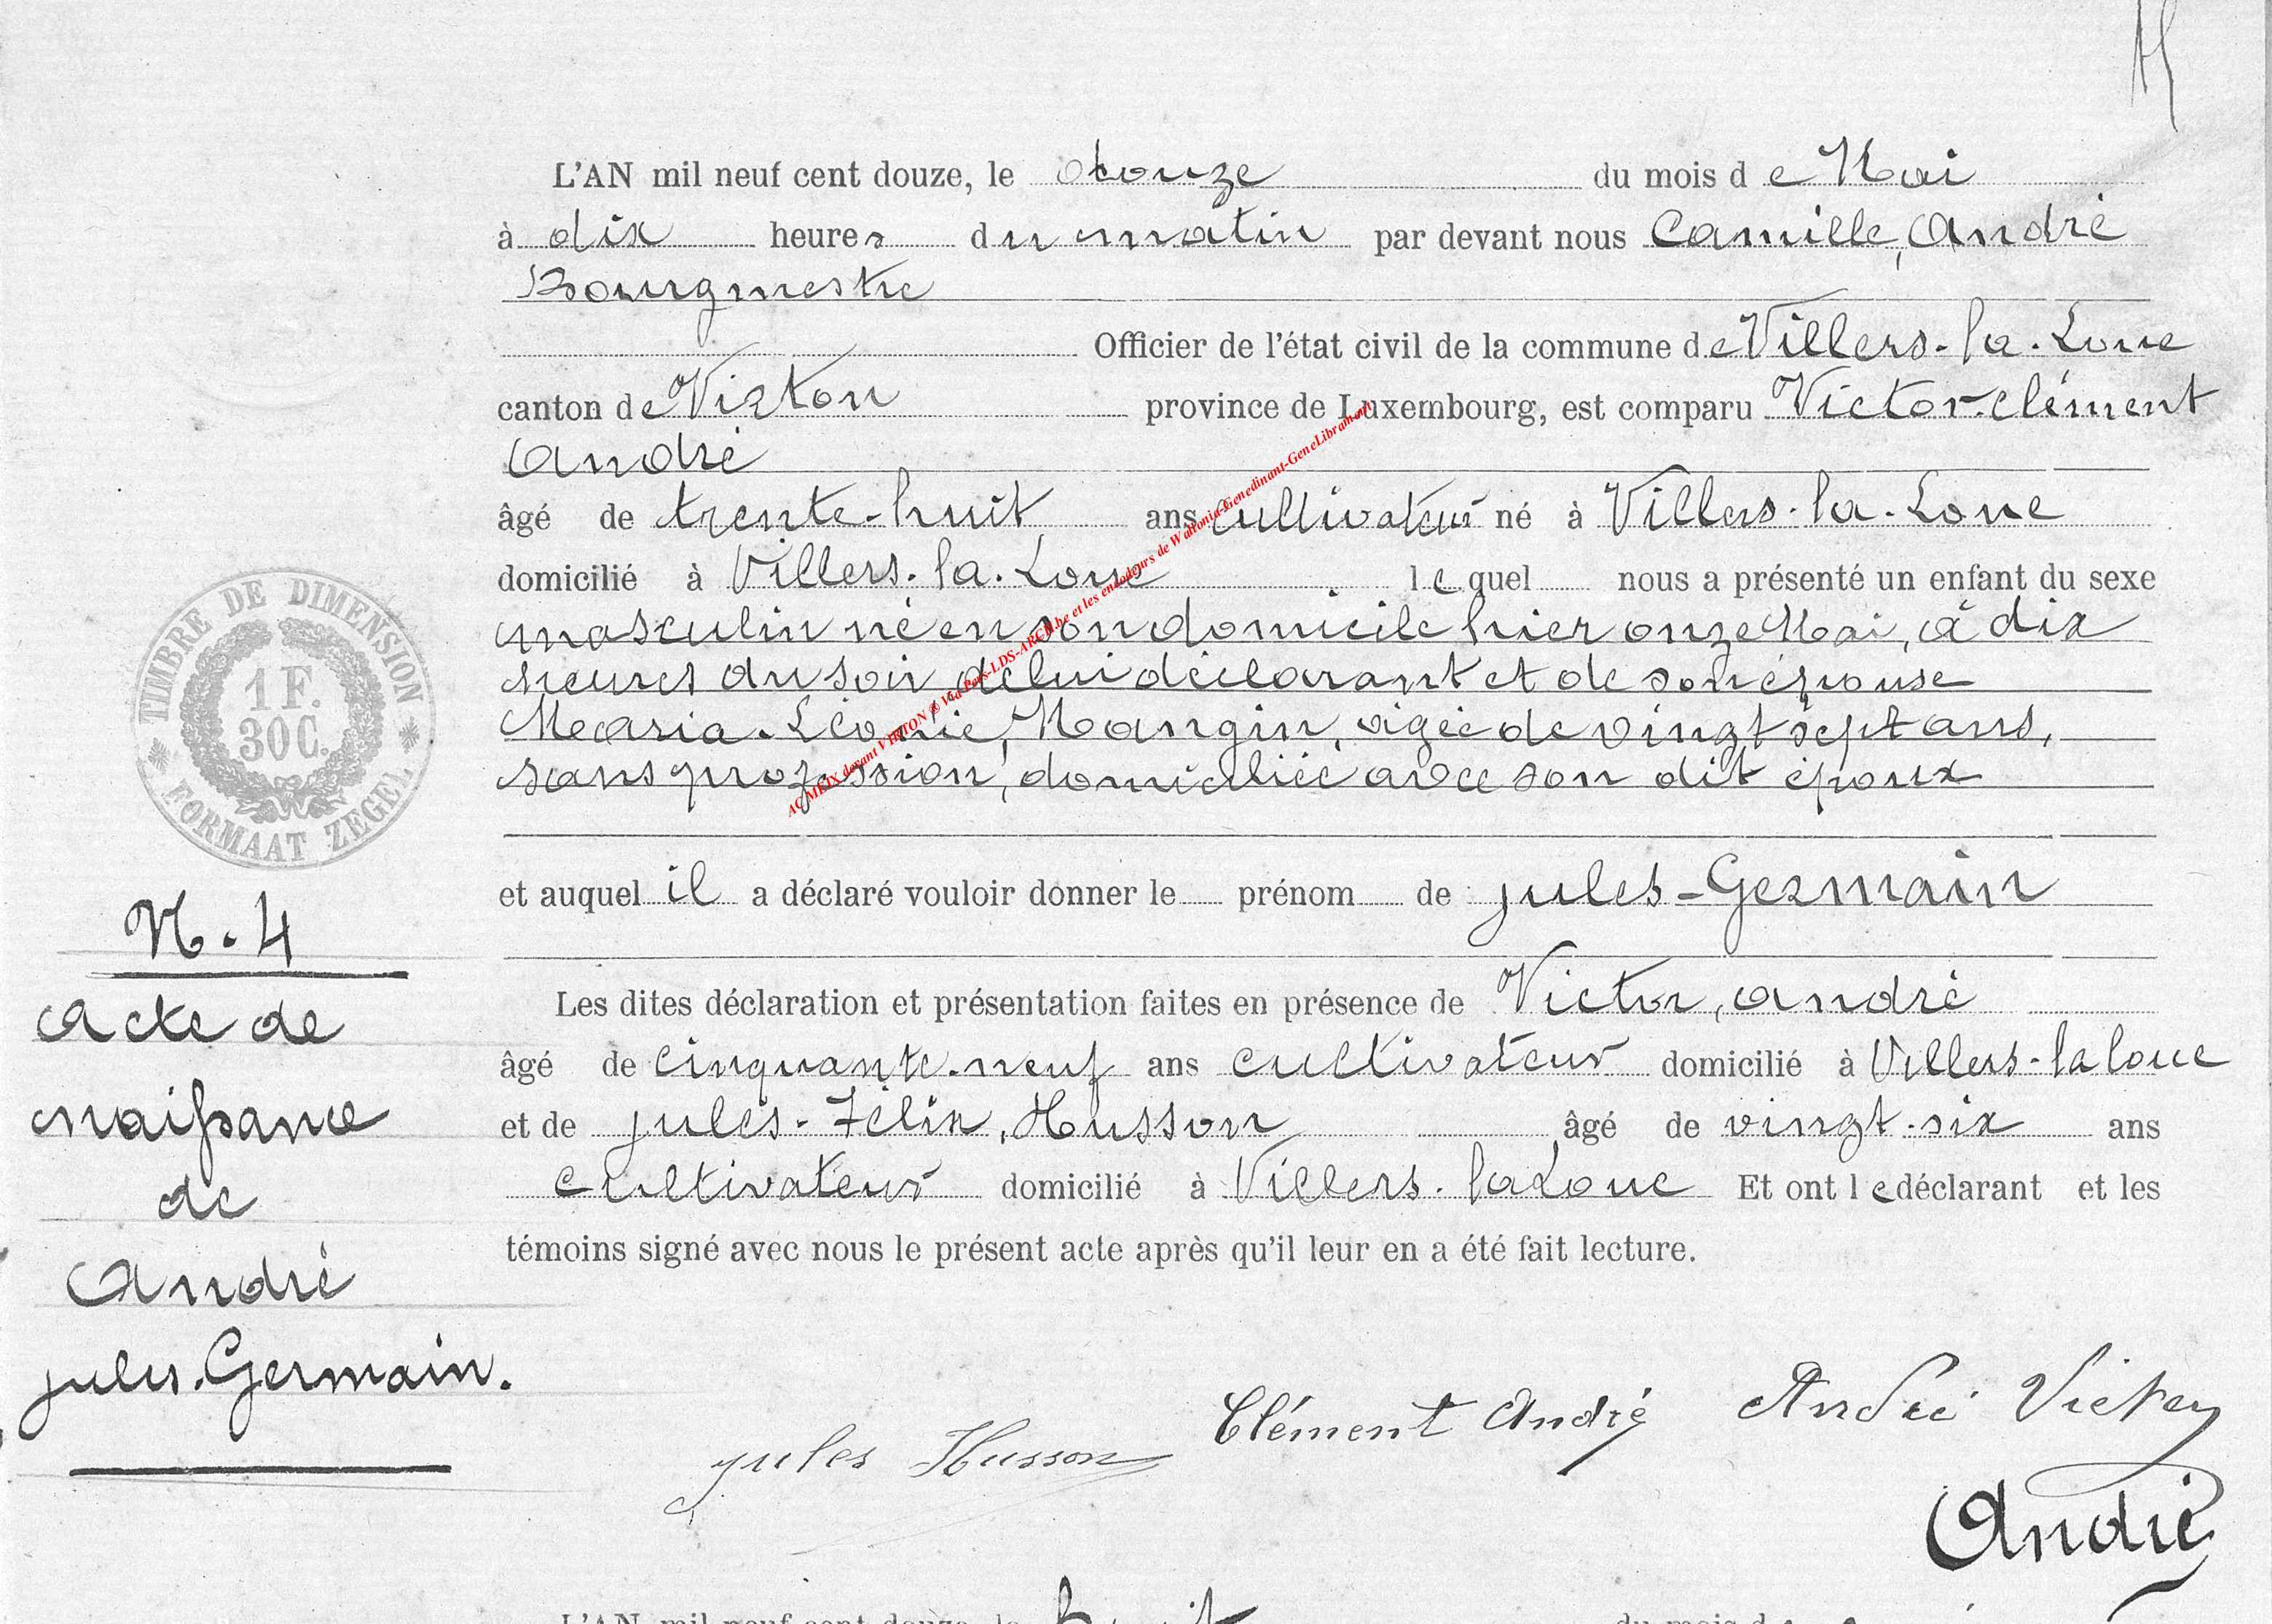 L'AN mil neuf cent douze, le douze du mois de Mai
à dix heures du matin par devant nous Camille, André
Bourgmestre
Officier de l'état civil de la commune de Villers-la-Loue
canton de Virton province de Luxembourg, est comparu Victor-Clément
André
âgé de trente-huit ans cultivateur né à Villers-la-Loue
domicilié à Villers-la-Loue lequel nous a présenté un enfant du sexe
masculin né en son domicile hier onze Mai, à dix
heures du soir de lui déclarant et de son épouse
Maria-Léonie, Mangin, âgée de vingt sept ans,
sans profession, domiciliée avec son dit époux
et auquel il a déclaré vouloir donner le prénom de Jules-Germain
Les dites déclaration et présentation faites en présence de Victor, André
âgé de cinquante-neuf ans cultivateur domicilié à Villers-la loue
et de Jules-Félix, Husson âgé de vingt-six ans
cultivateur domicilié à Villers-la Loue Et ont le déclarant et les
témoins signé avec nous le présent acte après qu'il leur en a été fait lecture.
Jules Husson Clément André André Victor
André
TIMBRE DE DIMENSION
1 F.
30 C.
FORMAAT ZEGEL
N. 4
Acte de
naissance
de
André
Jules-Germain.
L'AN mil neuf cent douze, le huit du mois d